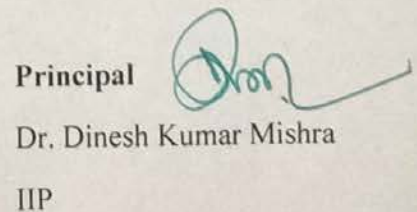 Principal
Dr. Dinesh Kumar Mishra
IIP